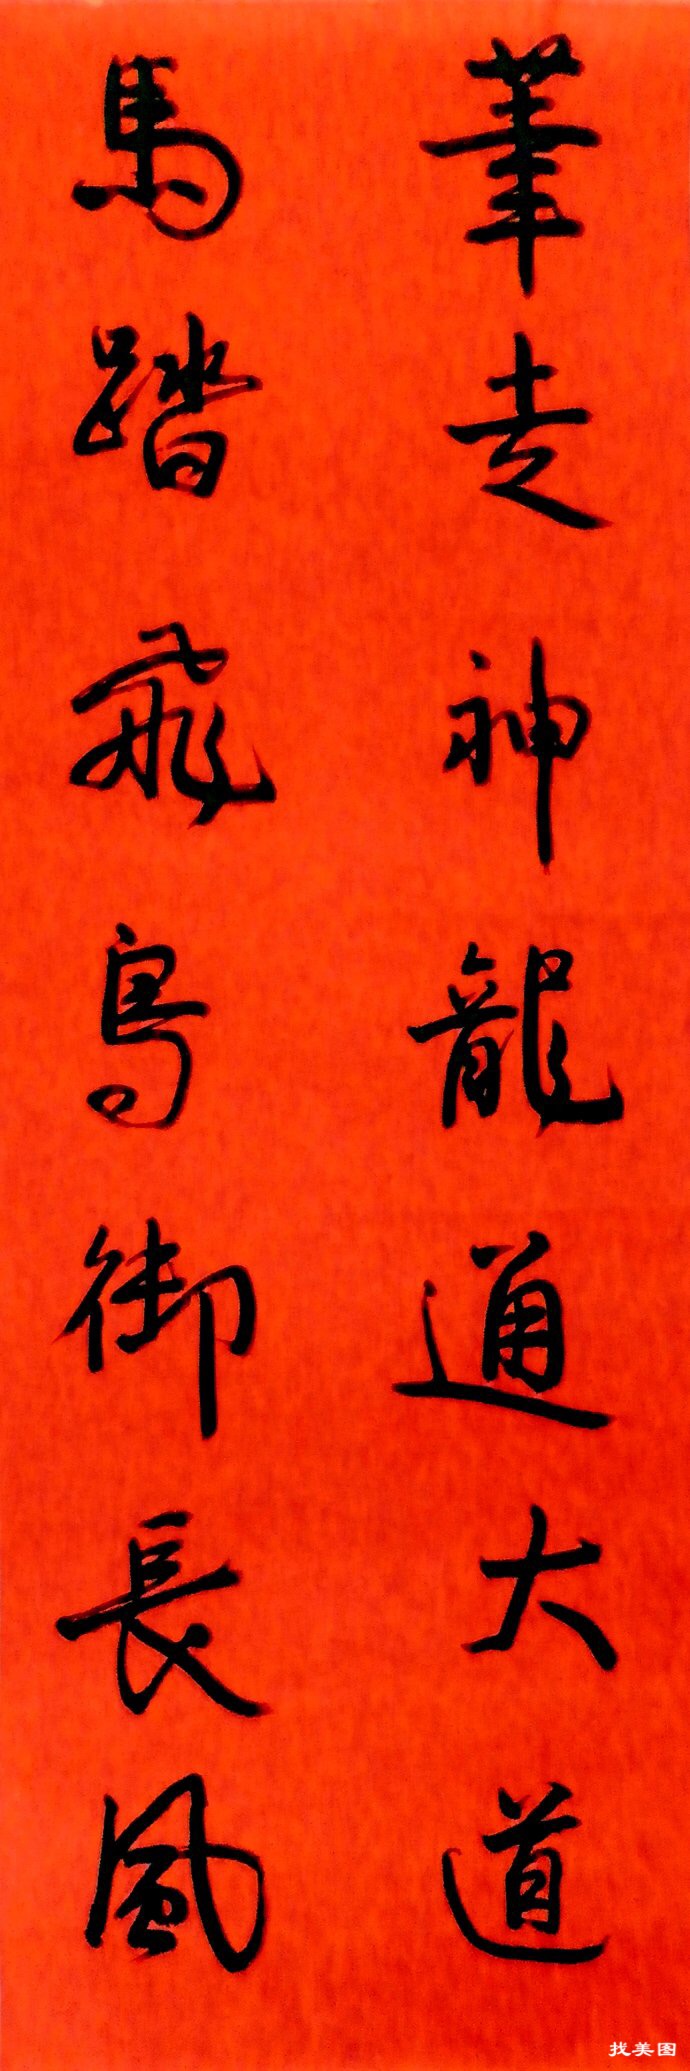 筆走神龍通大道
馬踏飛鳥御長風
找美图